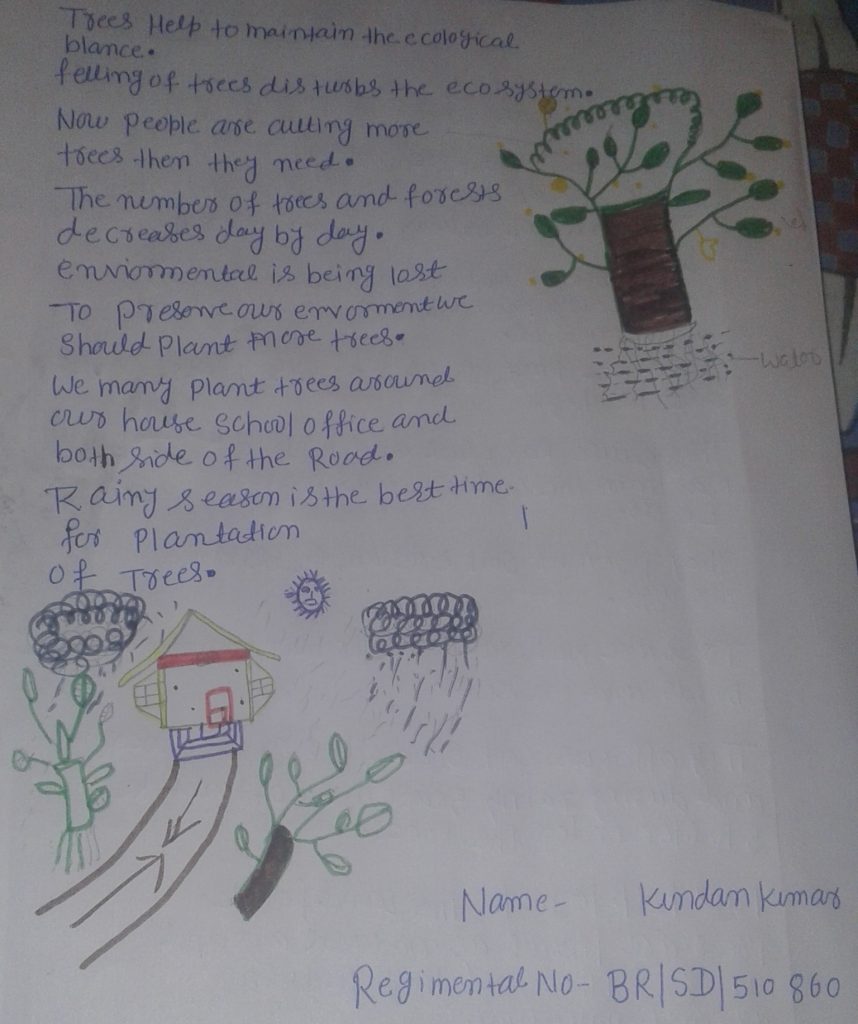 Trees Help to maintain the ecological
blance.
felling of trees disturbs the ecosystem.
Now people are cutting more
trees then they need.
The number of trees and forests
decreases day by day.
enviormental is being last
To preserve our envorment we
Should Plant more trees.
We many plant trees around
our house School office and
both side of the Road.
Rainy season is the best time.
for Plantation
Of Trees.
Water
Name- Kundan Kumar
Regimental No- BR/SD/510 860